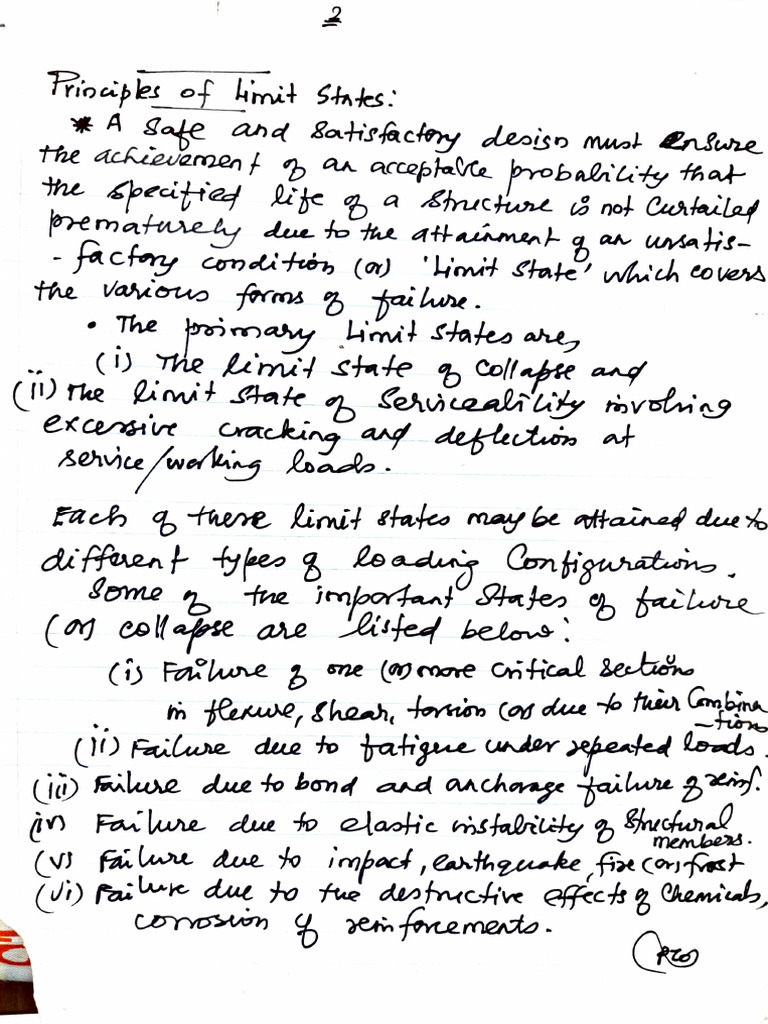 2
Principles of Limit States:
* A safe and satisfactory design must Ensure
the achievement of an acceptable probability that
the specified life of a structure is not Curtailed
prematurely due to the attainment of an unsatis-
-factory condition (or) 'Limit State' which covers
the various forms of failure.
• The primary Limit States are,
(i) The limit state of collapse and
(ii) The limit state of Serviceability involving
excessive cracking and deflection at
service/working loads.
Each of these limit states may be attained due to
different types of loading Configurations.
Some of the important States of failure
(or) collapse are listed below:
(i) Failure of one (or) more critical sections
in flexure, shear, torsion (or) due to their Combina
-tions
(ii) Failure due to fatigue under repeated loads.
(iii) Failure due to bond and anchorage failure of reinf.
(iv) Failure due to elastic instability of Structural
members.
(v) Failure due to impact, earthquake, fire (or) frost
(vi) Failure due to the destructive effects of Chemicals,
corrosion of reinforcements.
(PTO)